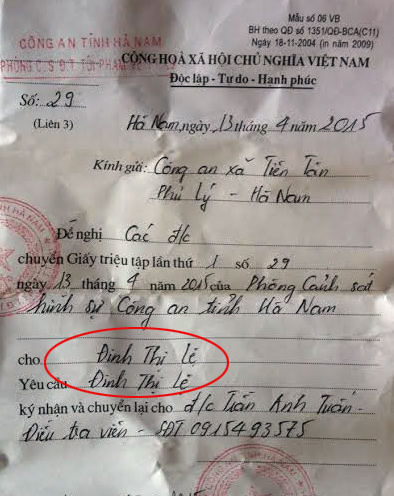 Mẫu số 06 VB
BH theo QĐ số 1351/QĐ-BCA(C11)
Ngày 18-11-2004 (in năm 2009)
CÔNG AN TỈNH HÀ NAM
PHÒNG C.S.Đ.T TỘI PHẠM
CỘNG HOÀ XÃ HỘI CHỦ NGHĨA VIỆT NAM
Độc lập - Tự do - Hạnh phúc
Số: 29
(Liên 3)
Hà Nam, ngày 13 tháng 4 năm 2015
Kính gửi: Công an xã Tiên Tân
Phủ Lý - Hà Nam
Đề nghị Các đ/c
chuyển Giấy triệu tập lần thứ 1 số 29
ngày 13 tháng 4 năm 2015 của Phòng Cảnh sát
hình sự Công an tỉnh Hà Nam
cho Đinh Thị Lệ
Yêu cầu Đinh Thị Lệ
ký nhận và chuyển lại cho đ/c Trần Anh Tuấn -
Điều tra viên - SĐT 0915493575